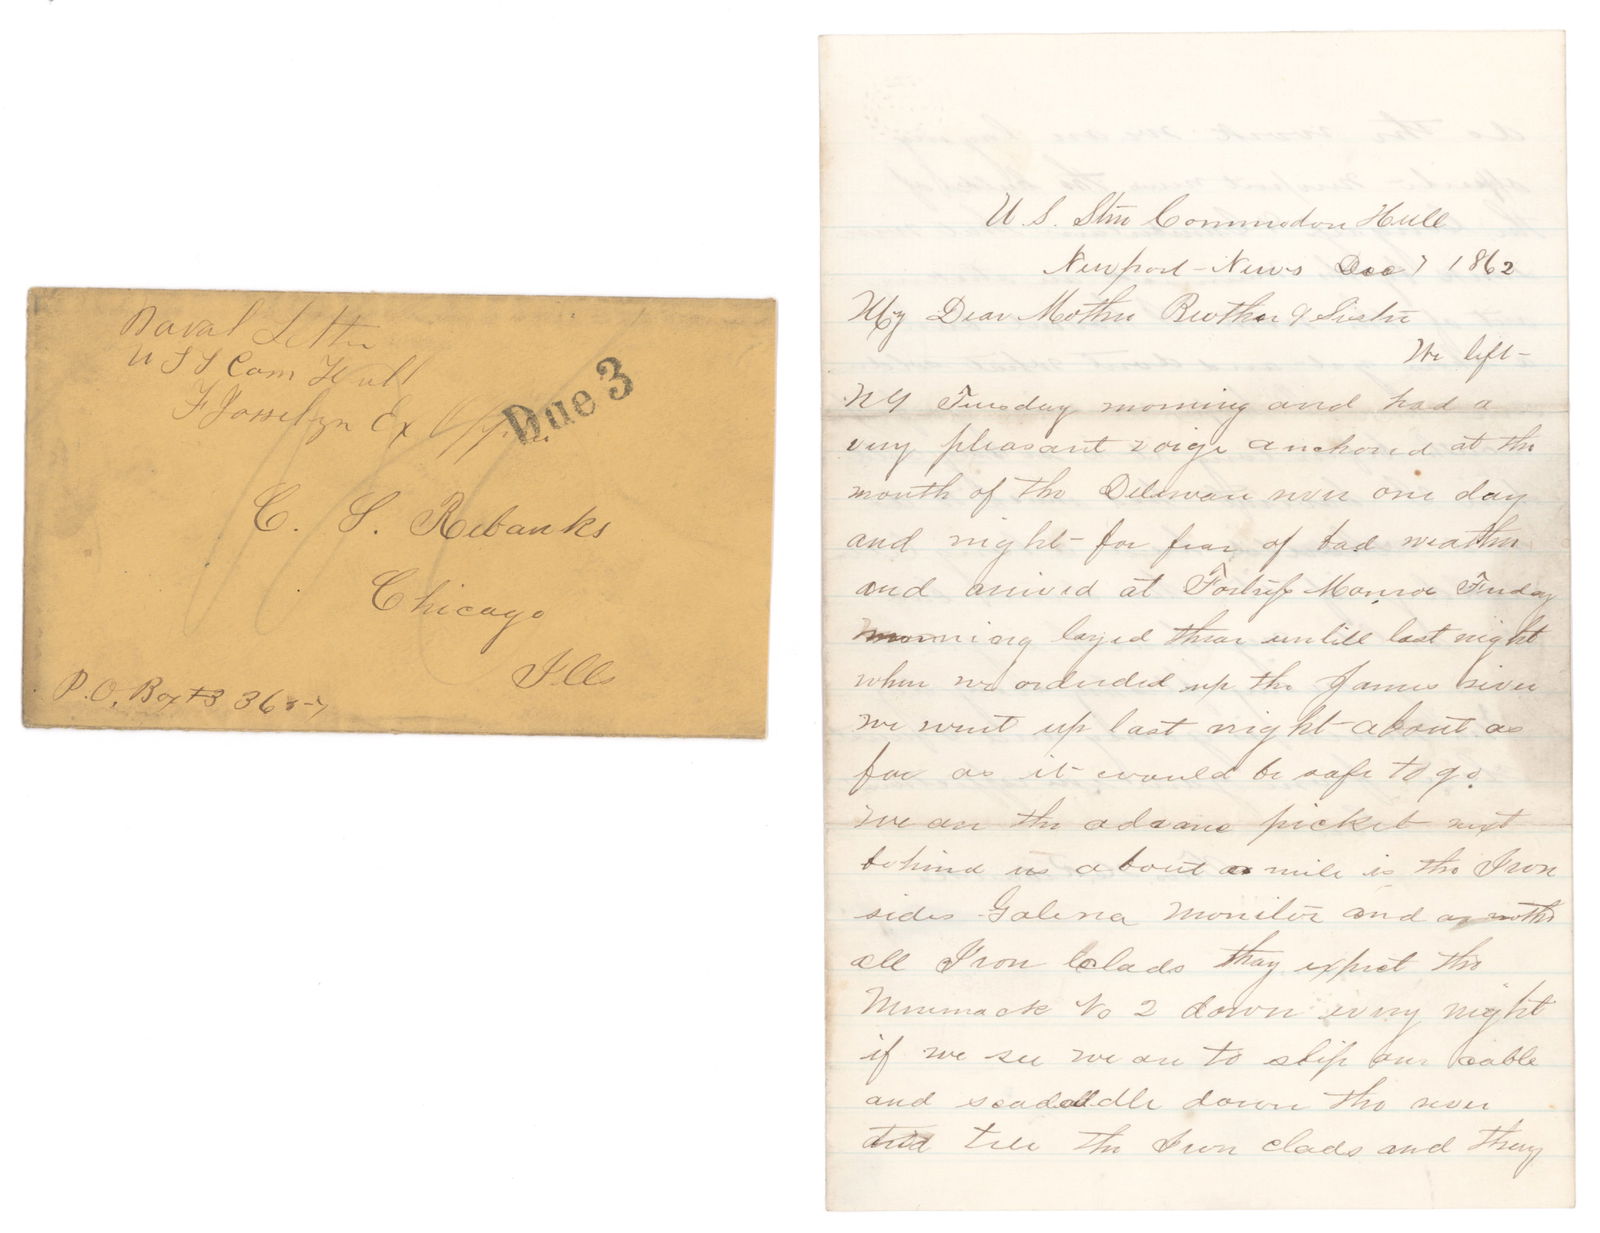 Naval Letter
U S S Com Hull
F Josselyn Ex Officer
Due 3
C. S. Rebanks
Chicago
Ills
P.O. Box 36
U. S. Stm Commodore Hull
Newport-News Dec 7 1862
My Dear Mother Brother & Sister
We left-
NY Tuesday morning and had a
very pleasant voige anchored at the
mouth of the Deleware river one day
and night- for fear of bad weather
and arived at Fortrefs Monroe Friday
morning layed thear untill last night
when we orderded up the James river
we went up last night about as
far as it would be safe to go.
We are the advanc picket next
behind us about a mile is the Iron
sides Galena Monitor and a nother
all Iron Clads thay expect the
Merrimack No 2 down every night
if we see we are to slip our cable
and scadaddle down the river
tell the Iron clads and thay